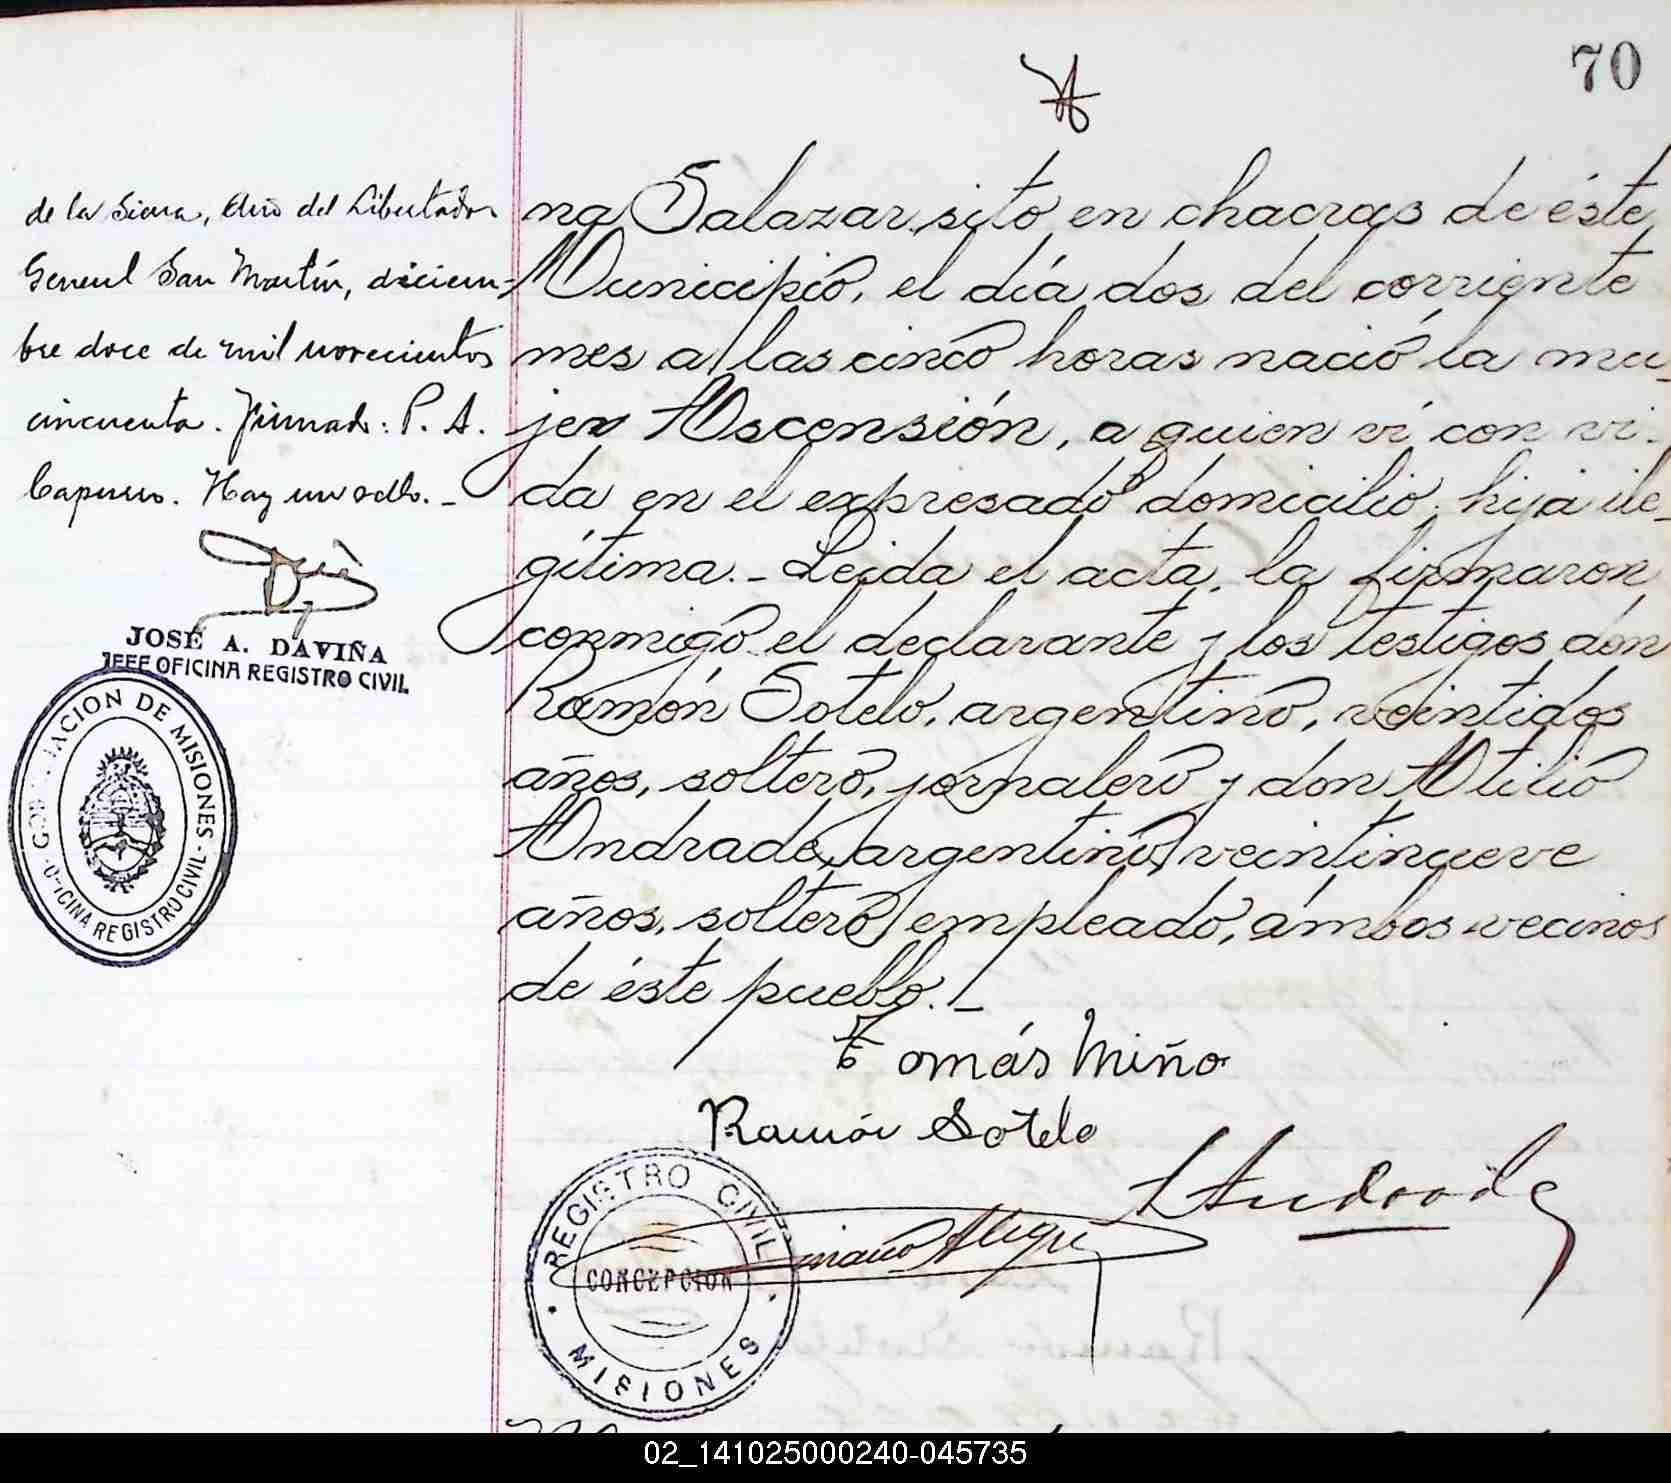 70
de la Sierra, Año del Libertador
General San Martín, diciem-
bre doce de mil novecientos
cincuenta. Firmado: P. A.
Capurro. Hay un sello. -
JOSÉ A. DAVIÑA
JEFE OFICINA REGISTRO CIVIL
GOBERNACION DE MISIONES
OFICINA REGISTRO CIVIL
na Salazar sito en chacras de éste
Municipio, el día dos del corriente
mes a las cinco horas nació la mu-
jer Ascensión, a quien ví con vi-
da en el expresado domicilio, hija ile-
gítima. - Leida el acta, la firmaron
conmigo el declarante y los testigos don
Ramón Sotelo, argentino, veintidos
años, soltero, jornalero y don Atilio
Andrade, argentino, veintinueve
años, soltero, empleado, ámbos vecinos
de éste pueblo. -
Tomás Miño
Ramón Sotelo
Andrade
Alegre
REGISTRO CIVIL
CONCEPCION
MISIONES
02_141025000240-045735